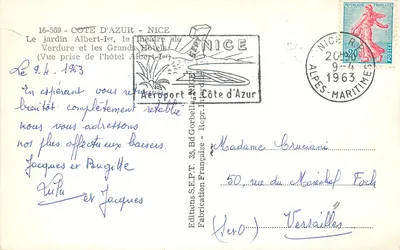 16-569 - COTE D'AZUR - NICE
Le jardin Albert-Ier, le théâtre de
Verdure et les Grands Hôtels
(Vue prise de l'hôtel Albert-Ier)
Le 9.4.1963
En espérant vous
bientôt complètement rétablie
nous vous adressons
nos plus affectueux baisers.
Jacques et Brigitte
Lulu
et Jacques
NICE
Aéroport Côte d'Azur
NICE R.P.
20H30
9-4
1963
ALPES-MARITIMES
Editions S.E.P.T. 33, Bd Gorbella,
Fabrication Française - Repr. In
Madame Cruciani
50, rue du Maréchal Foch
Versailles
(S et O)